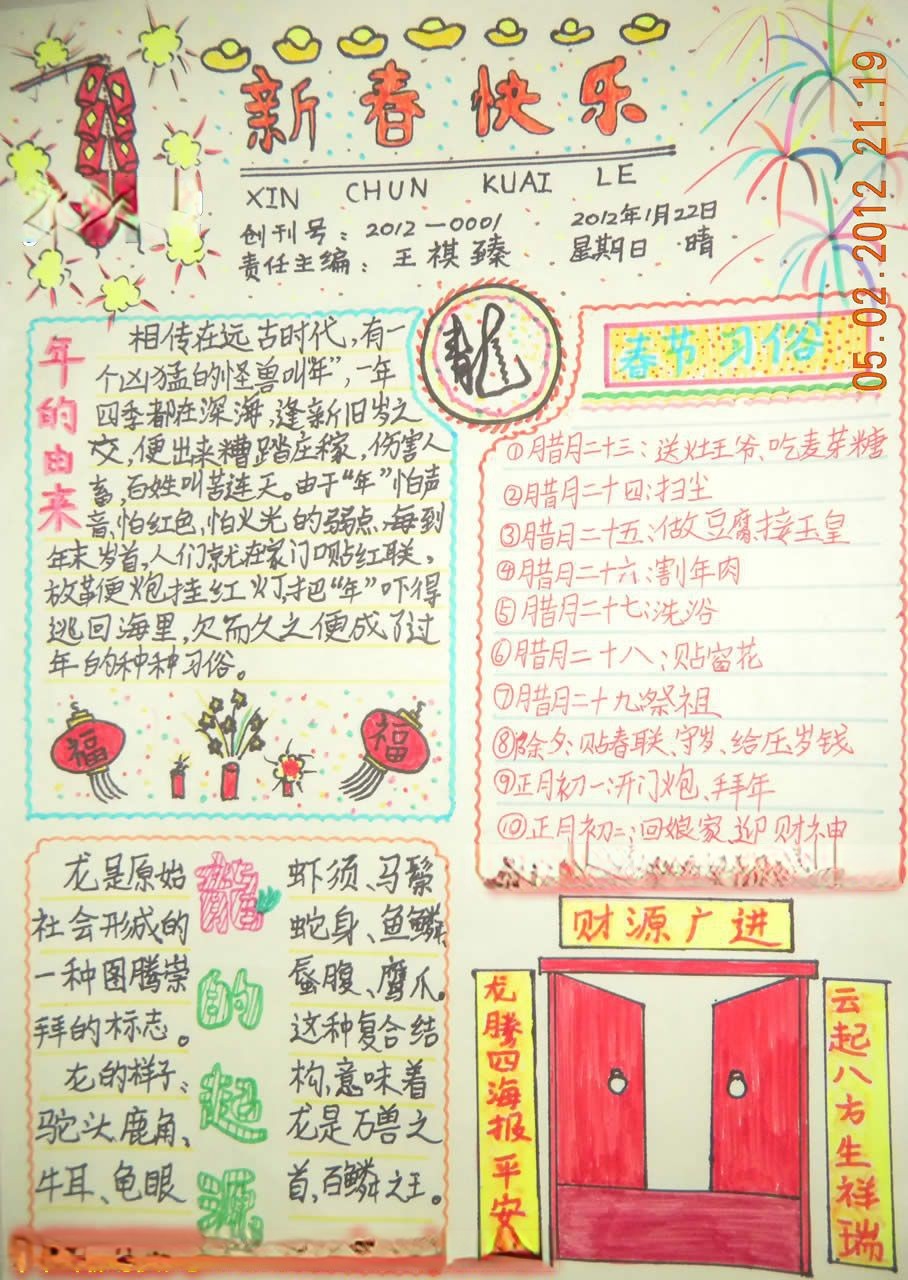 新春快乐
XIN CHUN KUAI LE
创刊号：2012—0001 2012年1月22日
责任主编：王祺臻 星期日 晴
05.02.2012 21:19
龍
年的由来
相传在远古时代，有一
个凶猛的怪兽叫“年”，一年
四季都在深海，逢新旧岁之
交，便出来糟踏庄稼，伤害人
畜，百姓叫苦连天。由于“年”怕声
音，怕红色，怕火光的弱点，每到
年末岁首，人们就在家门贴红联，
放革便炮挂红灯，把“年”吓得
逃回海里，欠而久之便成了过
年的种种习俗。
福
福
春节习俗
①月腊月二十三：送灶王爷、吃麦芽糖
②月腊月二十四：扫尘
③月腊月二十五：做豆腐、接玉皇
④月腊月二十六：割年肉
⑤月腊月二十七：洗浴
⑥月腊月二十八：贴窗花
⑦月腊月二十九：祭祖
⑧除夕：贴春联、守岁、给压岁钱
⑨正月初一：开门炮、拜年
⑩正月初二：回娘家、迎财神
龍的起源
龙是原始
社会形成的
一种图腾崇
拜的标志。
龙的样子：
驼头、鹿角、
牛耳、龟眼
虾须、马鬃
蛇身、鱼鳞、
蜃腹、鹰爪。
这种复合结
构，意味着
龙是百兽之
首，百鳞之王。
财源广进
龙腾四海报平安
云起八方生祥瑞